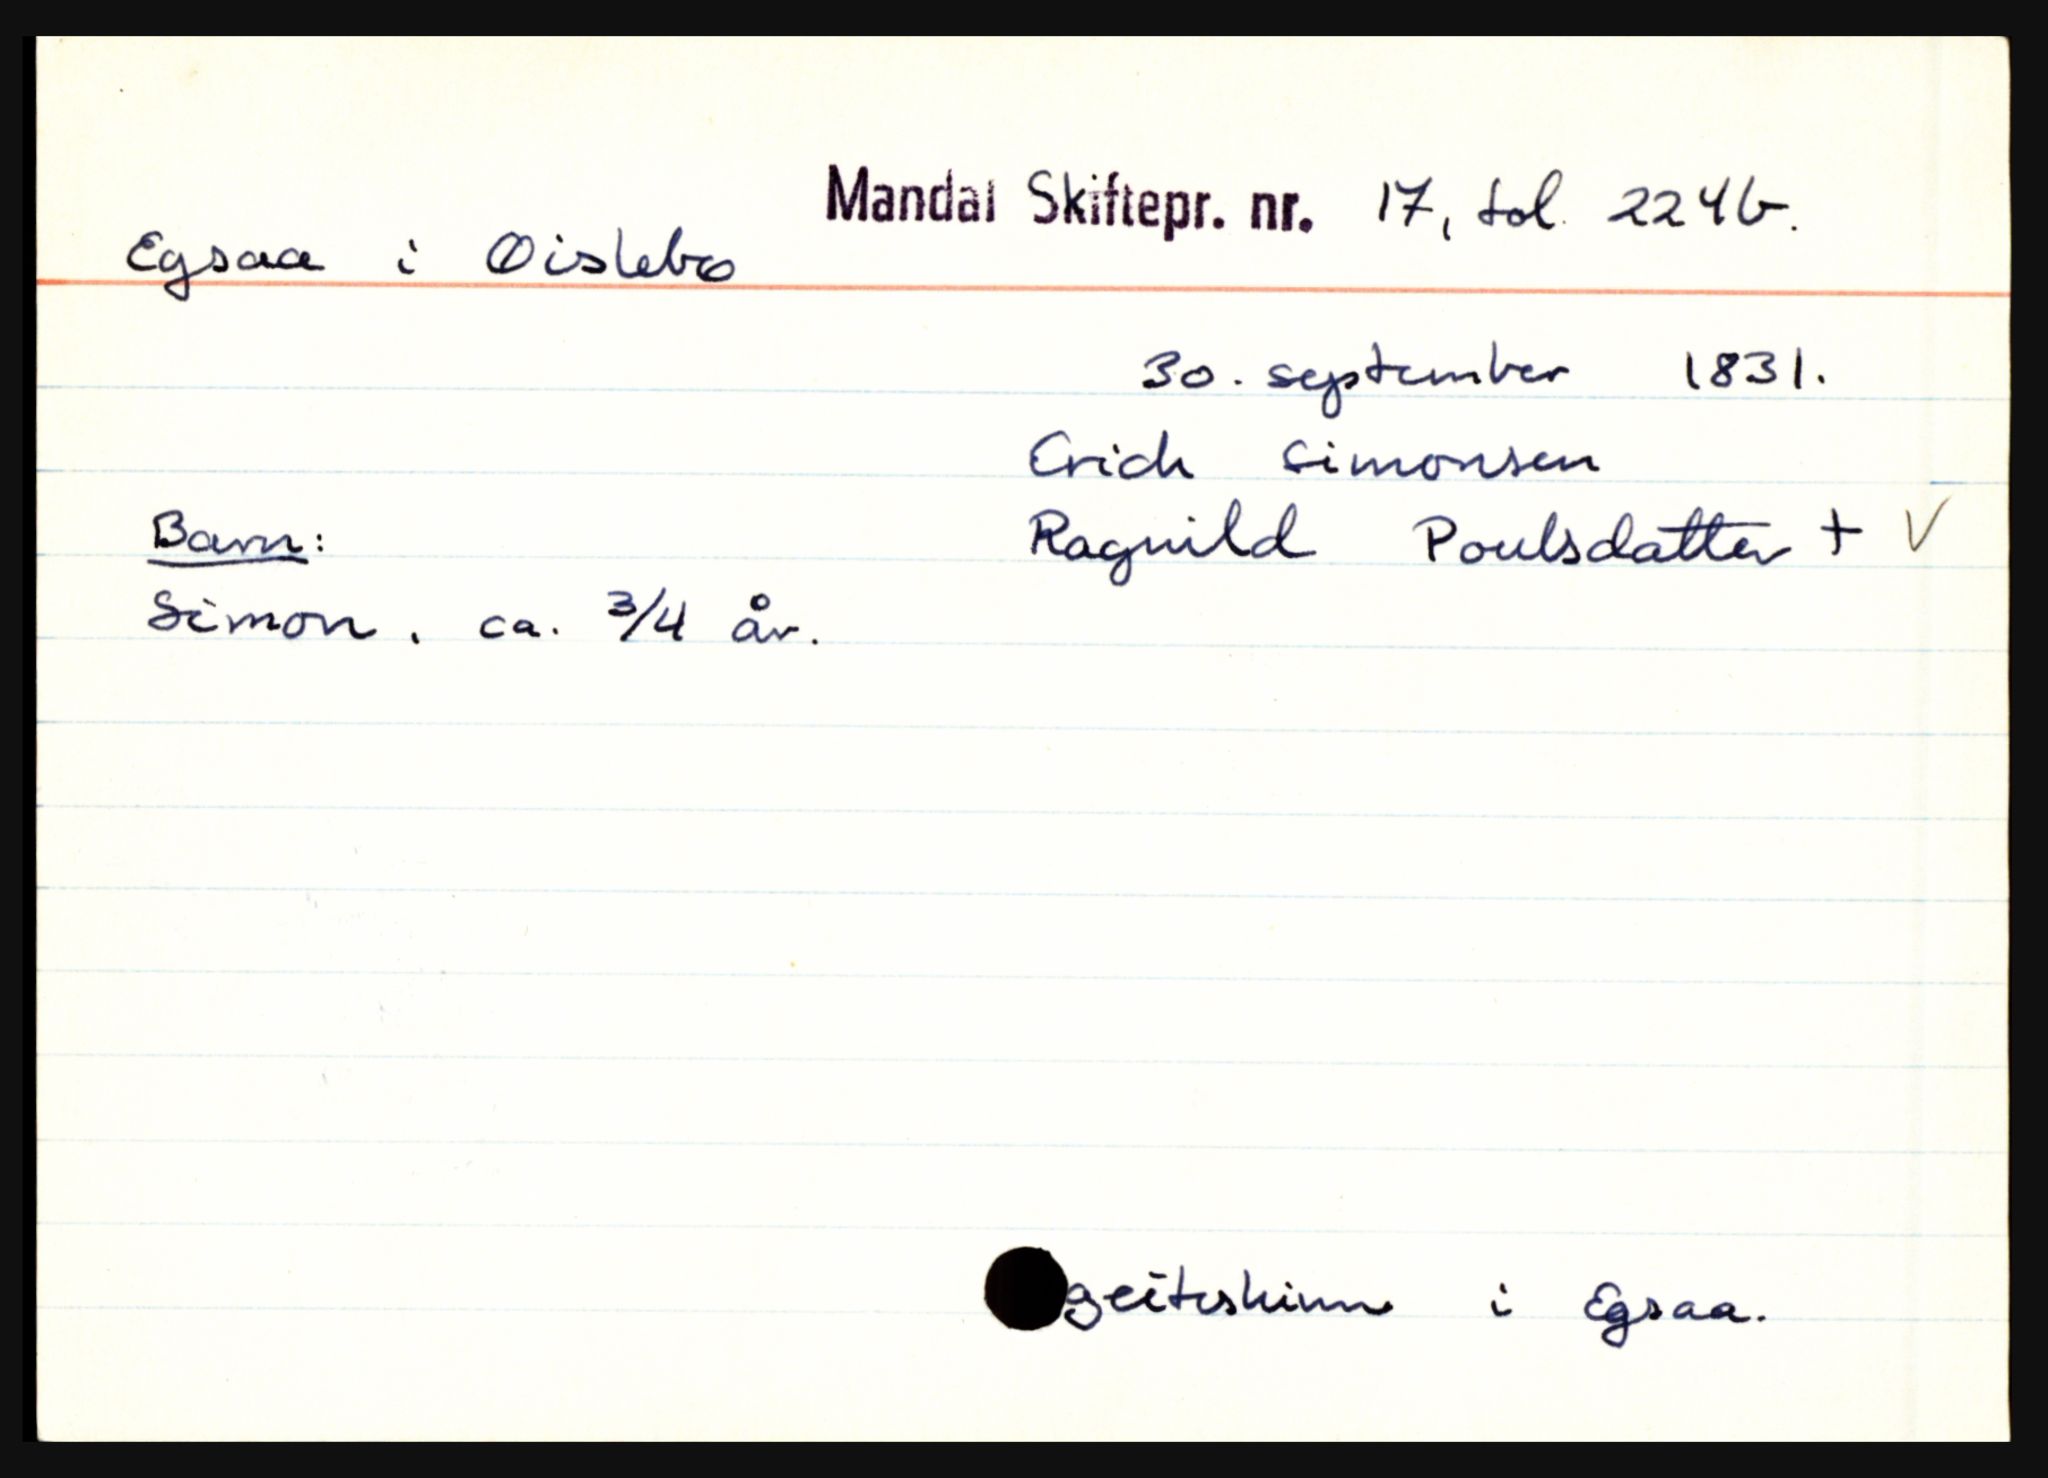 Mandal Skiftepr. nr. 17, fol. 224b.
Egsaa i Øislebø
30. september 1831.
Erich Simonsen
Ragnild Poulsdatter + V
Barn:
Simon, ca. 3/4 år.
geiteskinn i Egsaa.